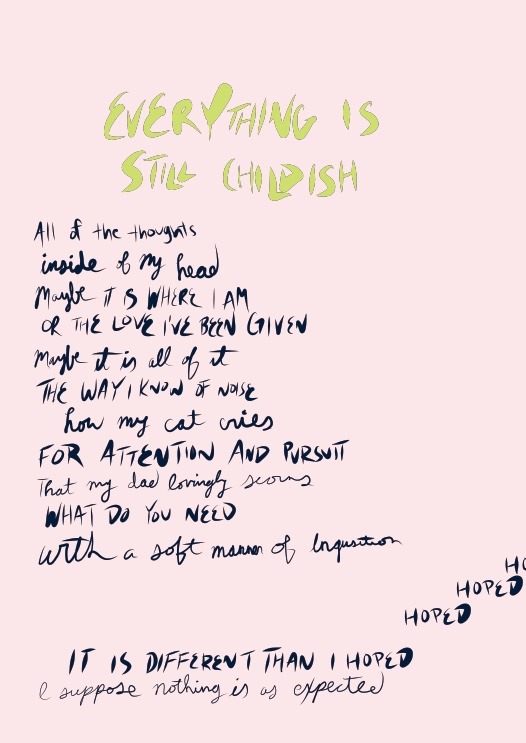 EVERYTHING IS
STILL CHILDISH
All of the thoughts
inside of my head
Maybe IT IS WHERE I AM
OR THE LOVE I'VE BEEN GIVEN
Maybe it is all of it
THE WAY I KNOW OF NOISE
how my cat cries
FOR ATTENTION AND PURSUIT
That my dad lovingly scorns
WHAT DO YOU NEED
with a soft manner of Inquisition
HO
HOPED
HOPED
IT IS DIFFERENT THAN I HOPED
I suppose nothing is as expected